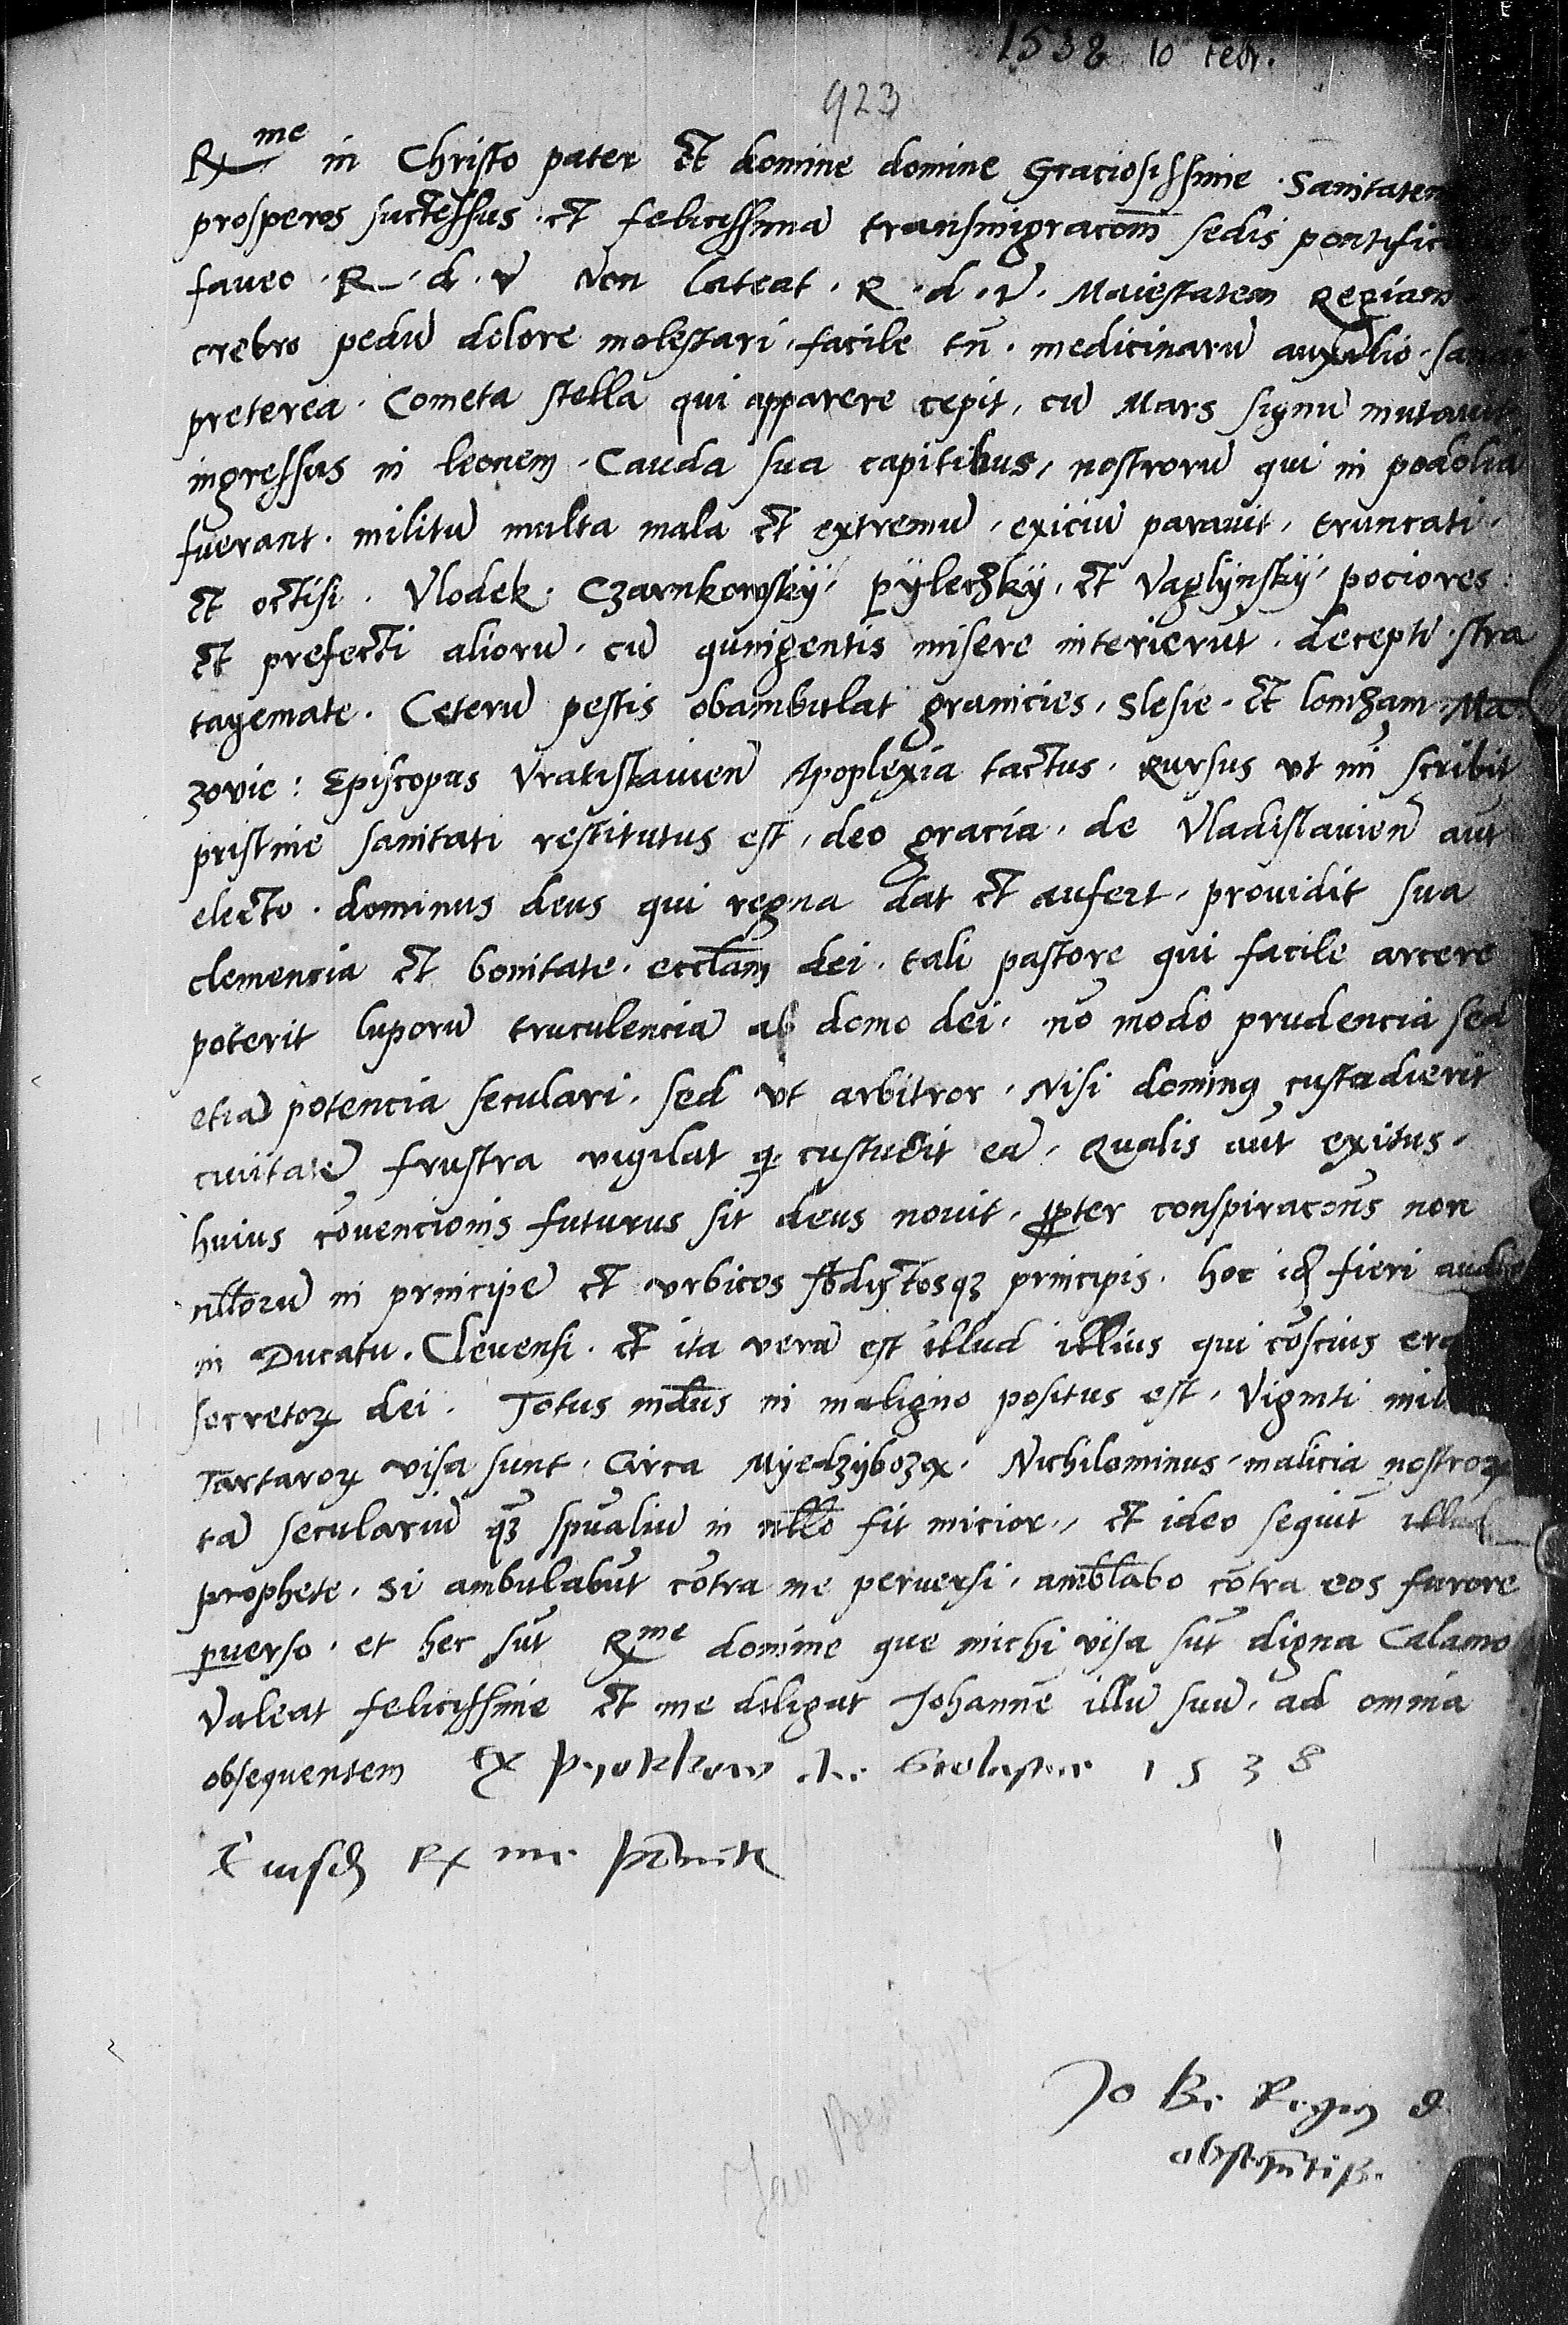 1538 10 Febr.
923
Rme in Christo pater et domine domine Graciosissime. Sanitatem
prosperos successus. et felicissima transmigracom sedis pontific
faueo. R. d. v Non lateat. R. d. v. Maiestatem Regiam
crebro pedu dolore molestari, facile tn. medicinaru auxilio. sanari
preterea. Cometa stella qui apparere cepit, cu Mars signu mutauit
ingressus in leonem. Cauda sua capitibus, nostroru qui in podolia
fuerant. militu multa mala et extremu, exiciu parauit, truncati.
et occisi. Vlodek. Czarnkowsky, pylechky, et Vaglynsky, pociores:
et prefecti alioru. cu quingentis misere interierut. decepti. stra
tagemate. Ceteru pestis obambulat granicies, Slesie. et lomzam. Ma
zovie: Episcopus Vratislauien Apoplexia tactus. Rursus vt mi scribit
pristine sanitati restitutus est, deo gracia. de Vladislauien aut
electo. dominus deus qui regna dat et aufert, prouidit sua
clemencia et bonitate. eccliam dei. tali pastore qui facile arcere
poterit luporu truculencia ab domo dei. no modo prudencia sed
etia potencia seculari. sed vt arbitror. Nisi dominus custodierit
ciuitate frustra vigilat q custudit ea. Qualis aut exitus.
huius couencionis futurus sit deus nouit. propter conspiracons non
nlloru in principe et vrbicos sbdytosq principis. hoc id fieri audio
in Ducatu. Cleuensi. et ita vera est illud illius qui coscius erat
secretor dei. Totus mdus in maligno positus est. Viginti mil
Tartaror visa sunt. Circa Myedzyboz. Nichilominus, malicia nostror
ta seculariu q spualiu in nllo fit micior, et ideo sequit illud
prophete. si ambulabut cotra me peruersi. amblabo cotra eos furore
puerso. et hec sut Rme domine que michi visa sut digna Calamo
Valeat felicissime et me diligat Johanne illu suu. ad omnia
obsequentem Ex pyotrkow die Scolastice 1538
Eiusd R me
Jo Be Regius
obseqntiss.
Jan